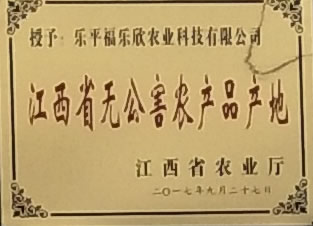 授予：乐平福乐欣农业科技有限公司
江西省无公害农产品产地
江西省农业厅
二〇一七年九月二十七日